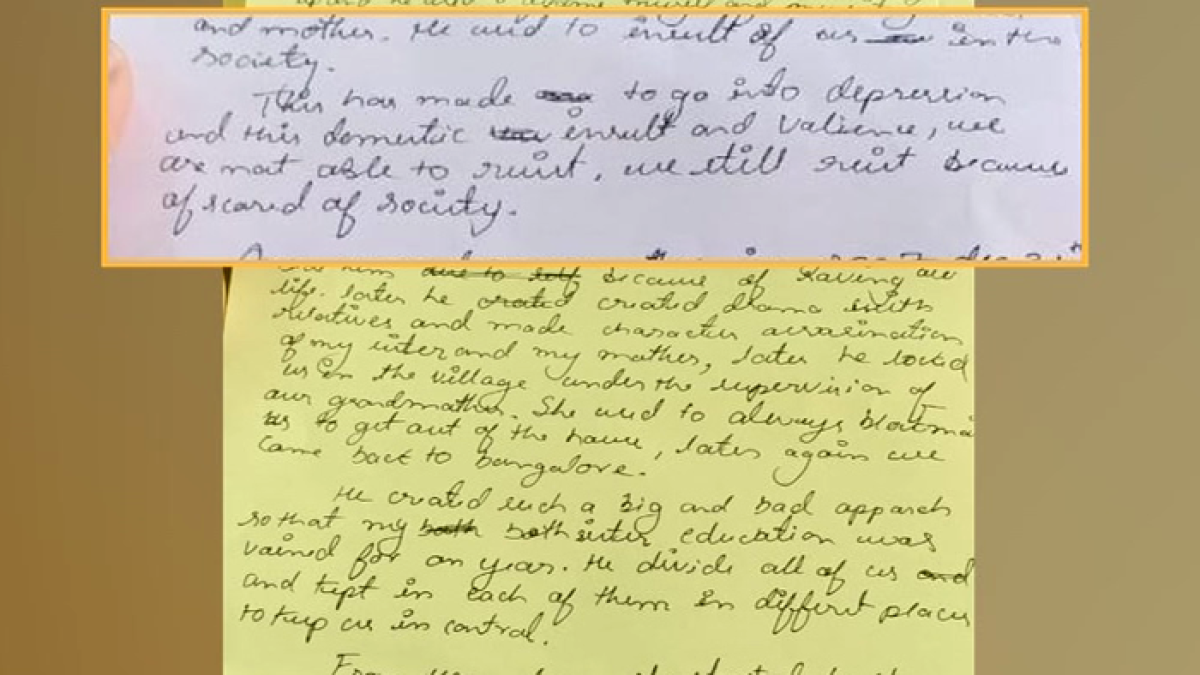 and mother. He used to insult of us in the
society.
This has made to go into depression
and this domestic insult and Valience, we
are not able to resist, we still resist because
of scared of society.
him due to self because of saving our
life. later he created created drama with
relatives and made character assasination
of my sister and my mother, later he locked
us in the village under the supervision of
our grandmother. She used to always
us to get out of the house, later again we
came back to bangalore.
He created such a big and bad
so that my both both sister education was
vained for an year. He divide all of us and
and kept in each of them in differet places
to keep us in control.